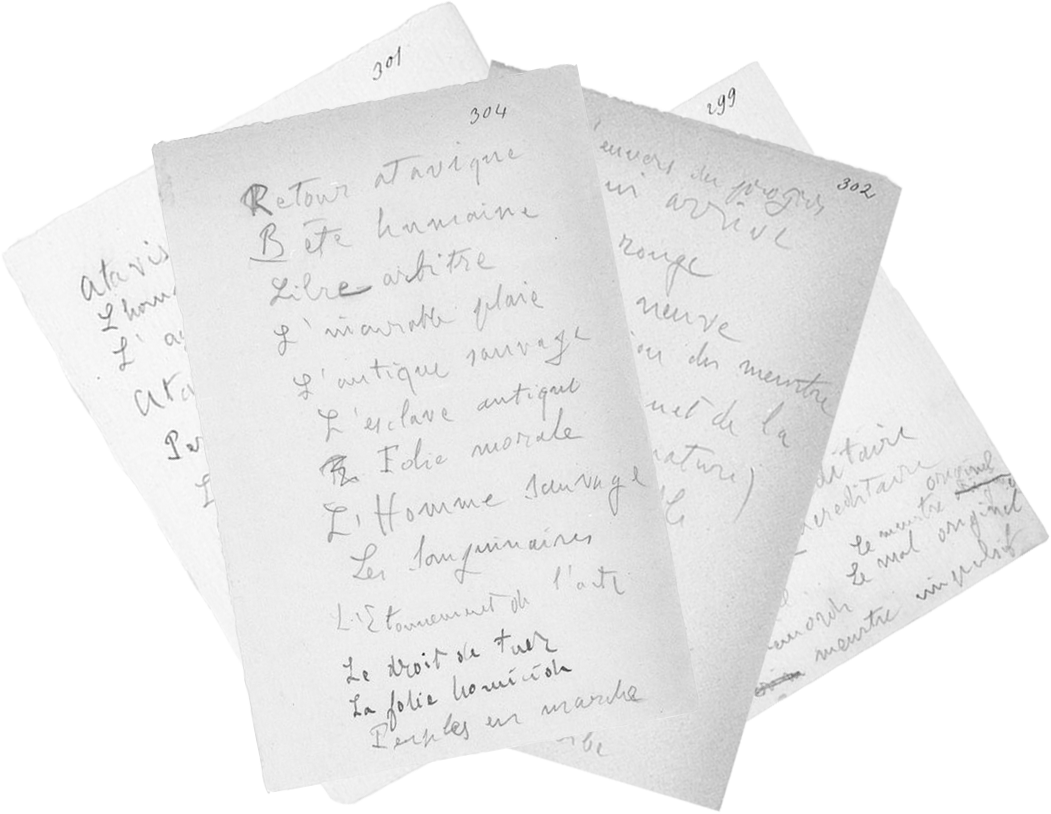 301
Atavis
L'hom
L'
Ata
304
Retour atavique
Bête humaine
Libre arbitre
L'incurable plaie
L'antique sauvage
L'esclave antique
Folie morale
L'Homme sauvage
Les Sanguinaires
L'Etonnement de l'acte
Le droit de tuer
La folie homicide
Peuples en marche
302
'envers du progrès
ui arrive
rouge
neuve
du meurtre
de la
nature)
299
ditaire
hereditaire
Le meurtre originel
Le mal originel
meurtre impulsif